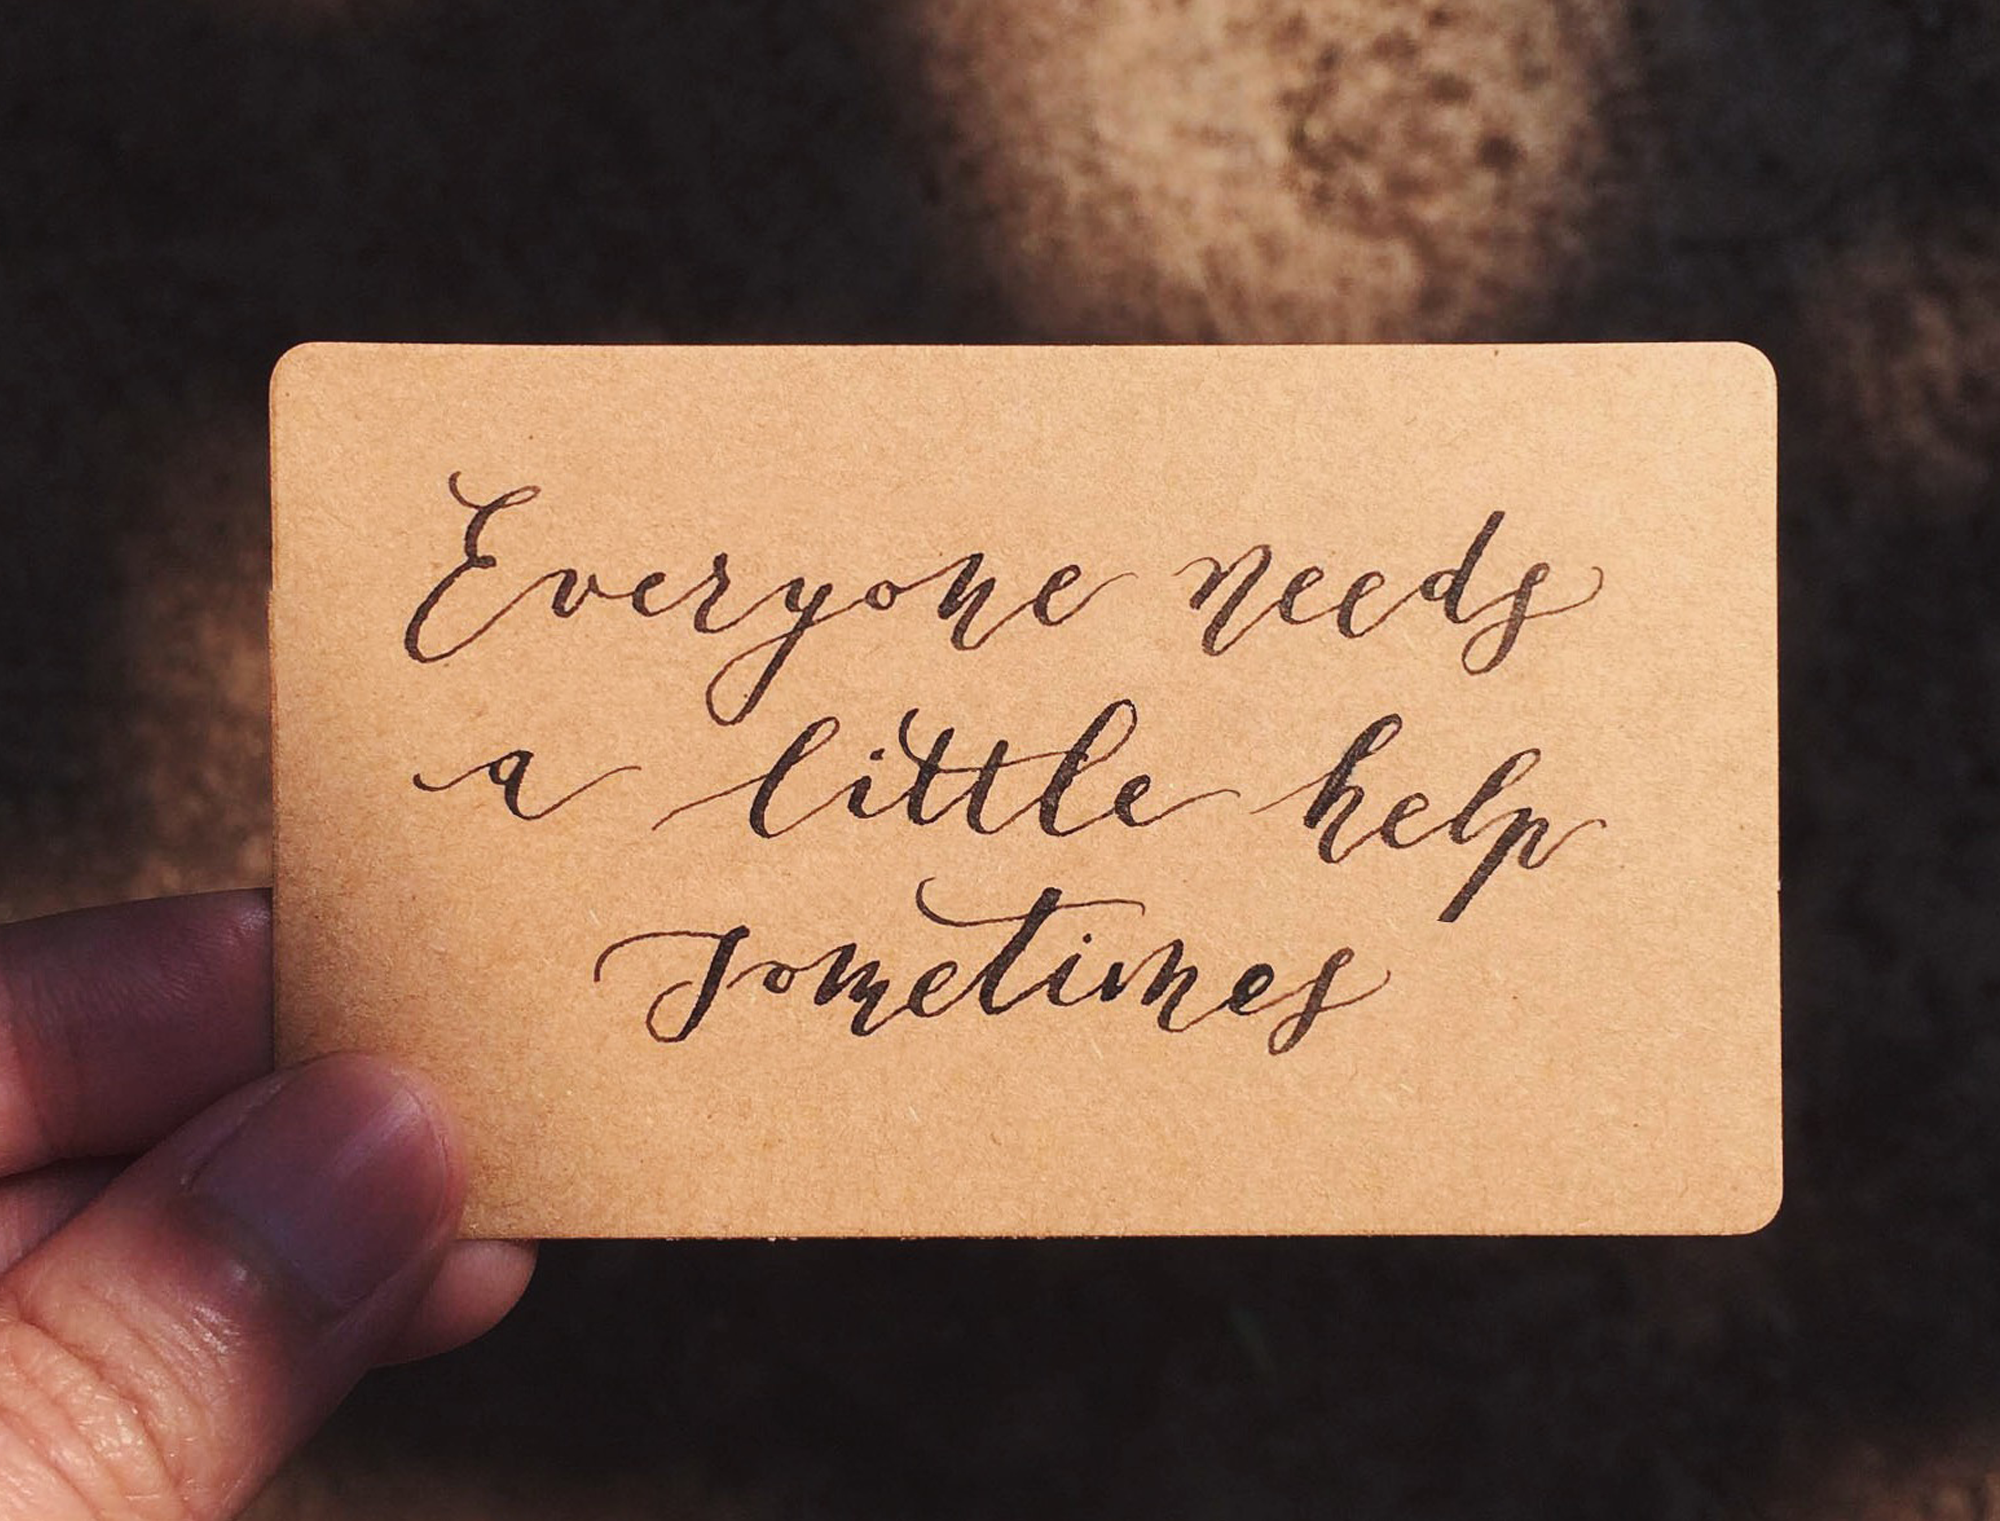 Everyone needs
a little help
sometimes